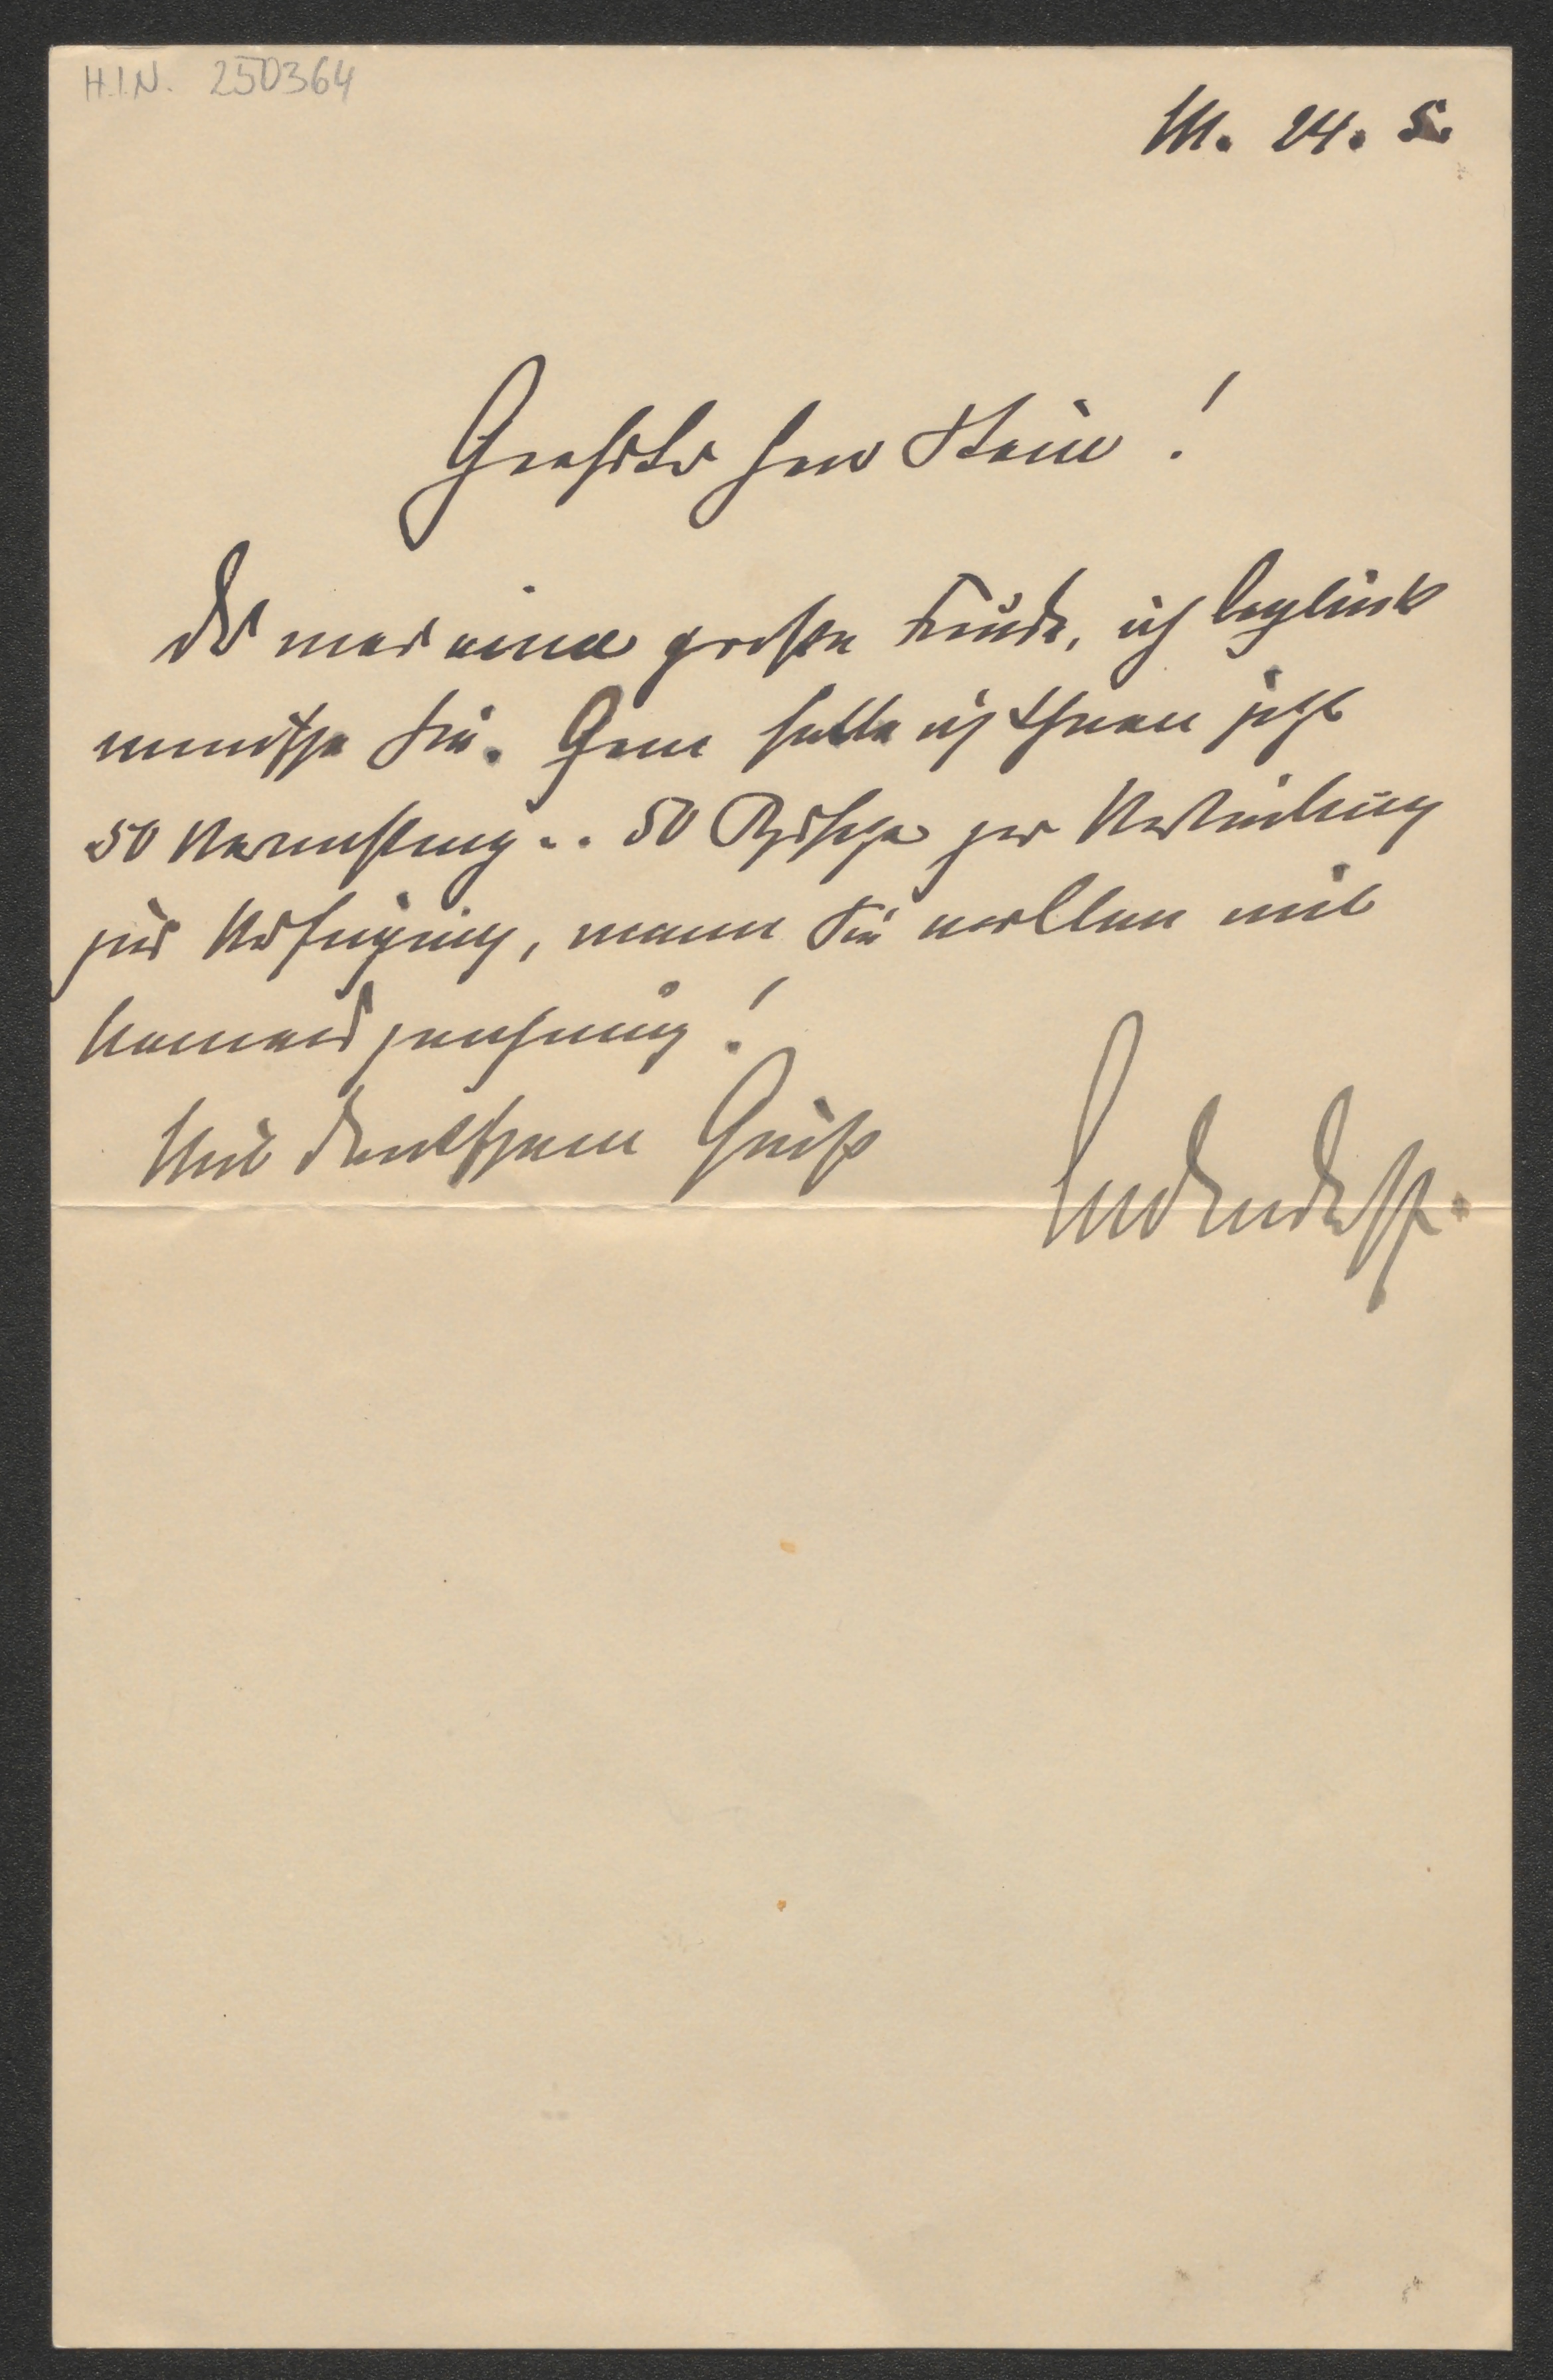 H.I.N. 250364
M. 24. 5.
Geehrter Herr Stein!
Das war eine große Freude, ich beglück
wünsche Sie. Gern stelle ich Ihnen jetzt
50 Vernichtung .. 50 zur Verteilung
zur Verfügung, wenn Sie wollen mit
Namenszeichnung!
Mit deutschem Gruß
Ludendorff.